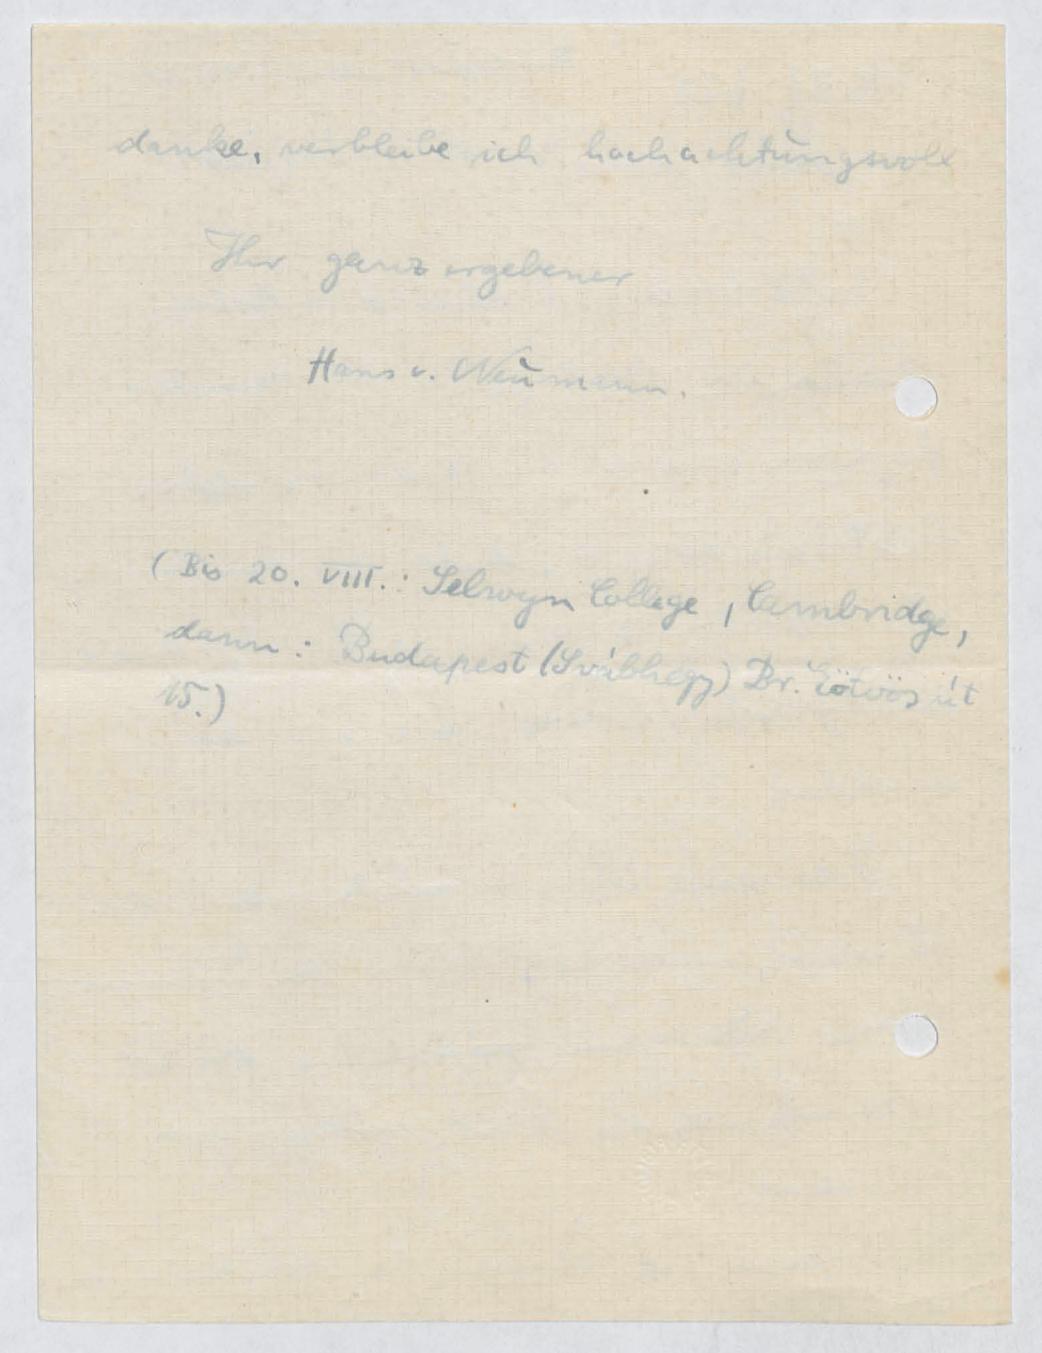 danke, verbleibe ich hochachtungsvoll
Ihr ganz ergebener
Hans v. Neumann.
(Bis 20. VIII.: Selwyn College, Cambridge,
dann: Budapest (Svábhegy) Br. Eötvös út
15.)